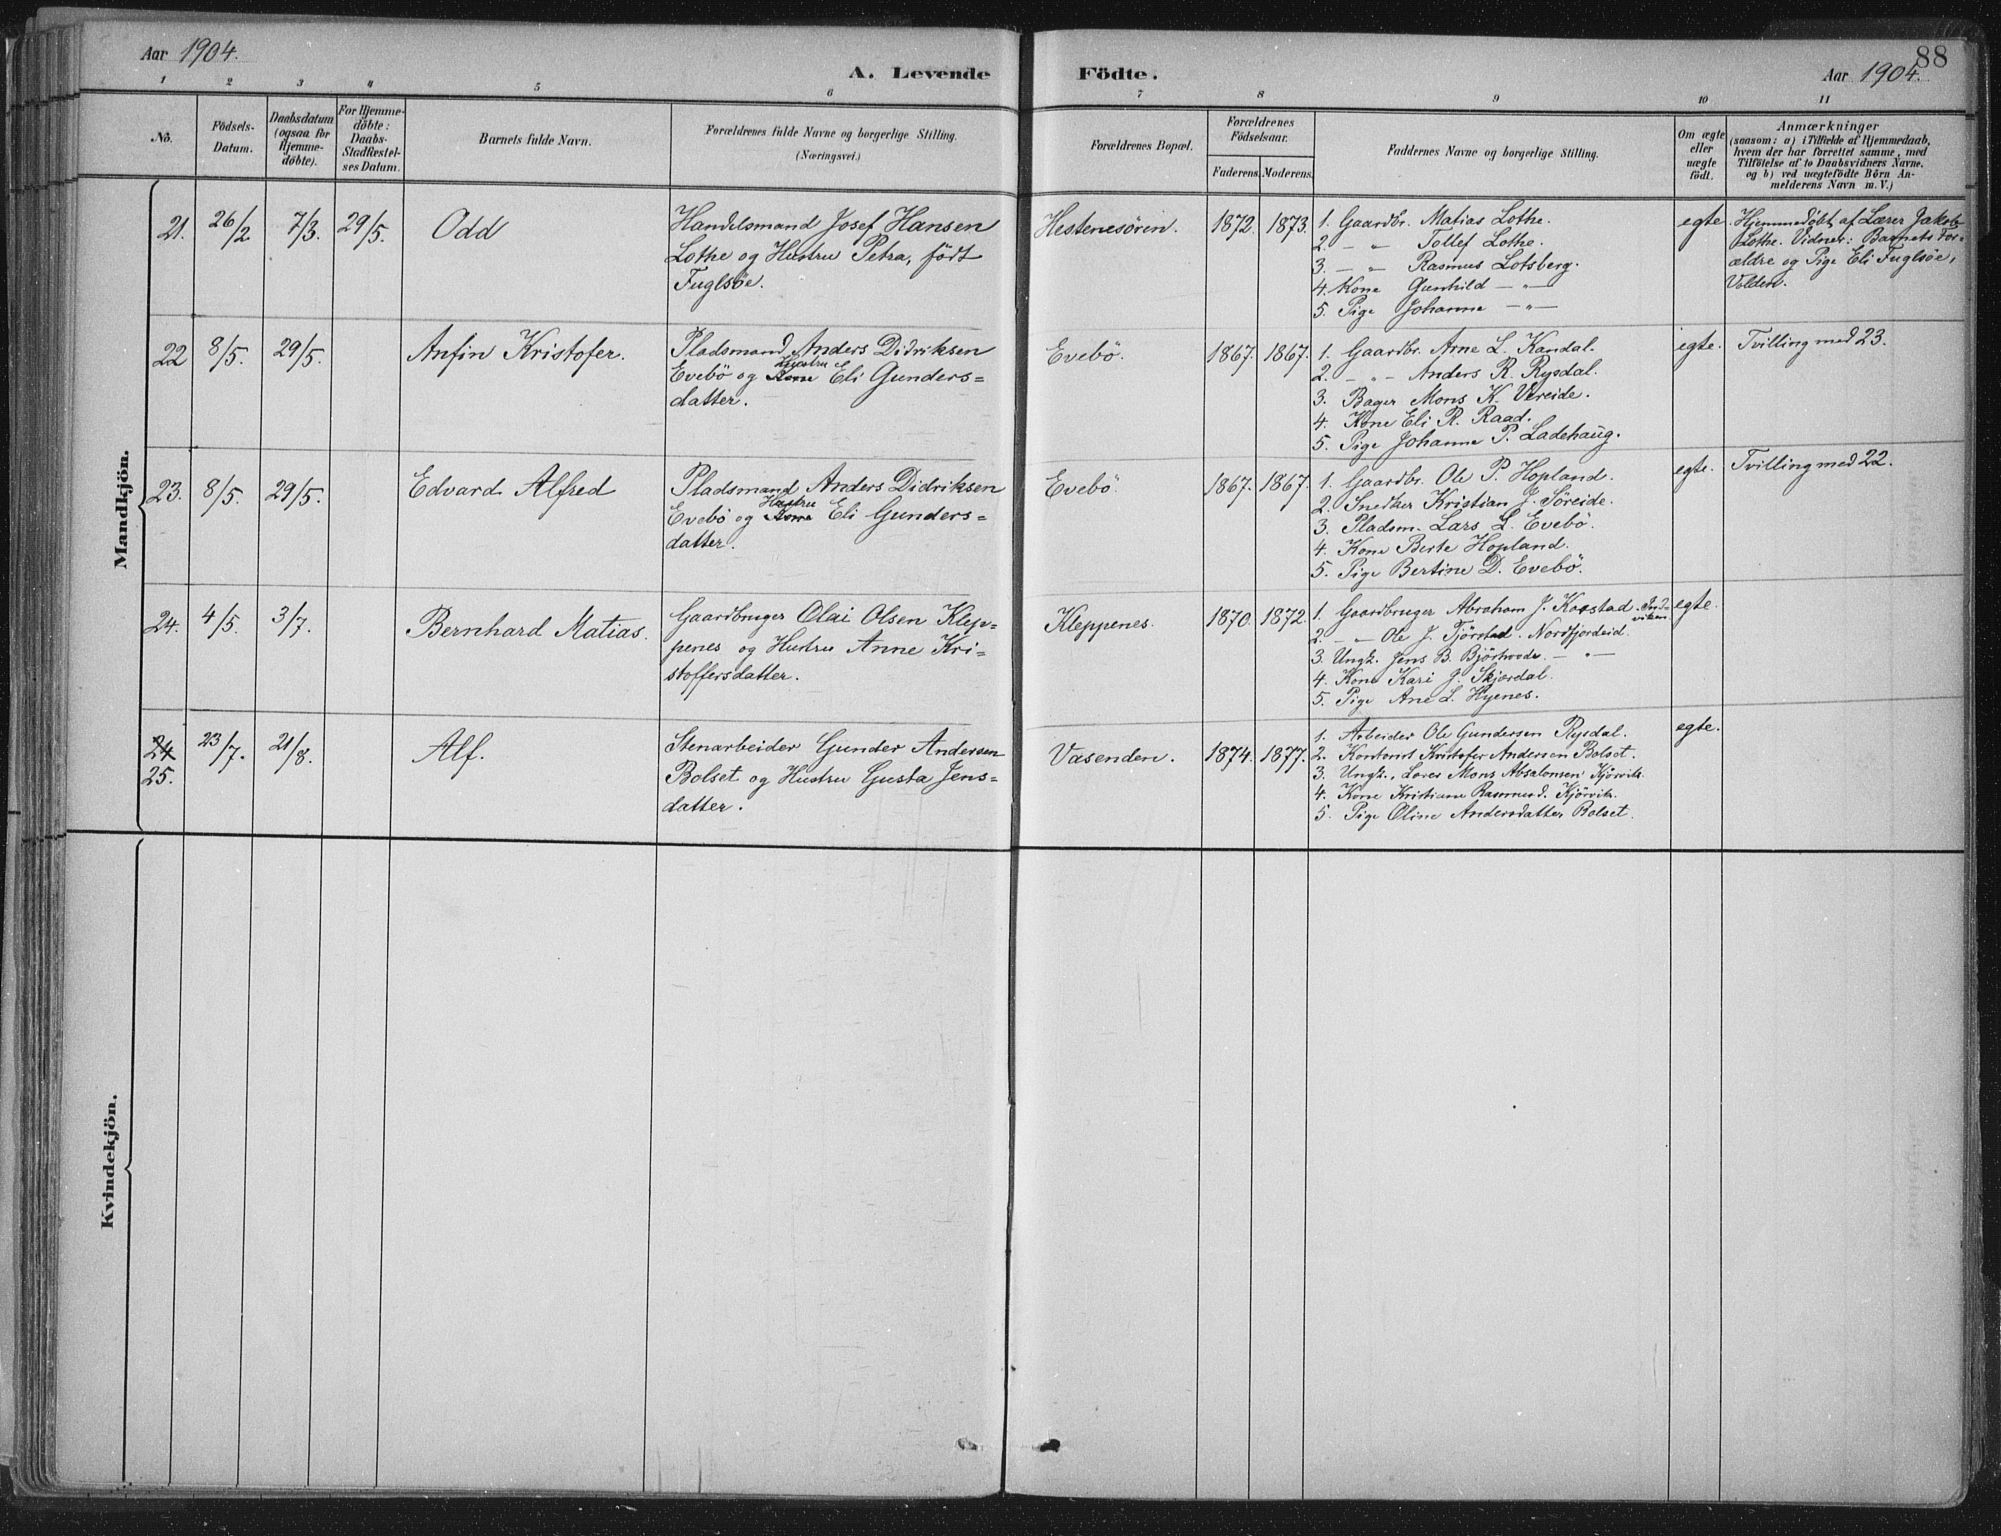 88
Aar 1904.
A. Levende Födte.
Aar 1904.
1 2 3 4 5 6 7 8 9 10 11
No.
Födsels-
Datum.
Daabsdatum
(ogsaa for
Hjemme-
döbte).
For Hjemme-
döbte:
Daabs-
Stadfæstel-
ses Datum.
Barnets fulde Navn.
Forældrenes fulde Navne og borgerlige Stilling.
(Næringsvei.)
Forældrenes Bopæl.
Forældrenes
Födselsaar.
Faderens. Moderens.
Faddernes Navne og borgerlige Stilling.
Om ægte
eller
uægte
födt.
Anmærkninger
(saasom: a) i Tilfælde af Hjemmedaab,
hvem der har forrettet samme, med
Tilföielse af to Daabsvidners Navne,
og b) ved uægtefödte Börn An-
melderens Navn m. V.)
Mandkjön.
21. 26/2 7/3. 29/5. Odd
Handelsmand Josef Hansen
Lothe og Hustru Petra, født
Fuglsøe.
Hestenesören. 1872. 1873.
1. Gaardbr. Matias Lothe.
2. — „ Tollef Lothe.
3. — „ Rasmus Lotsberg.
4. Kone Gunhild — „ —
5. Pige Johanne — „ —
egte
Hjemmedøbt af Lærer Jakob
Lothe. Vidner: Barnets For-
ældre og Pige Eli Fuglsøe,
Volden.
22 8/5. 29/5. Anfin Kristofer.
Pladsmand Anders Didriksen
Evebö og Kone Hustru Eli Gunders=
datter.
Evebö. 1867. 1867.
1. Gaardbr. Arne L. Kandal.
2. — „ — Anders R. Rysdal.
3. Bager Mons K. Vereide.
4. Kone Eli R. Raad.
5. Pige Johanne P. Ladehaug.
egte. Tvilling med 23.
23. 8/5. 29/5. Edvard Alfred
Pladsmand Anders Didriksen
Evebö og Kone Hustru Eli Gunders=
datter.
Evebö. 1867. 1867.
1. Gaardbr. Ole P. Hopland.
2. Snedker Kristian J. Søreide.
3. Pladsm. Lars L. Evebö.
4. Kone Berte Hopland.
5. Pige Bertine D. Evebö.
egte. Tvilling med 22.
24. 4/5. 3/7. Bernhard Matias.
Gaardbruger Olai Olsen Klep-
penes og Hustru Anne Kri-
stoffersdatter.
Kleppenes. 1870. 1872.
1. Gaardbruger Abraham J. Indviken
2. — „ — Ole J. Nordfjordeid.
3. Ungk. Jens B. — „ —
4. Kone Kari J. Skjærdal.
5. Pige Ane L. Hyenes.
egte.
24
25. 23/7. 21/8. Alf.
Stenarbeider Gunder Andersen
Bolset og Hustru Gusta Jens-
datter.
Vasenden. 1874. 1877.
1. Arbeider Ole Gundersen Rysdal.
2. Kontorist Kristofer Andersen Bolset.
3. Ungk. Mons Absalonsen Kjørvik.
4. Kone Kristiane Rasmusd. Kjørvik.
5. Pige Oline Andersdatter Bolset.
egte.
Kvindekjön.